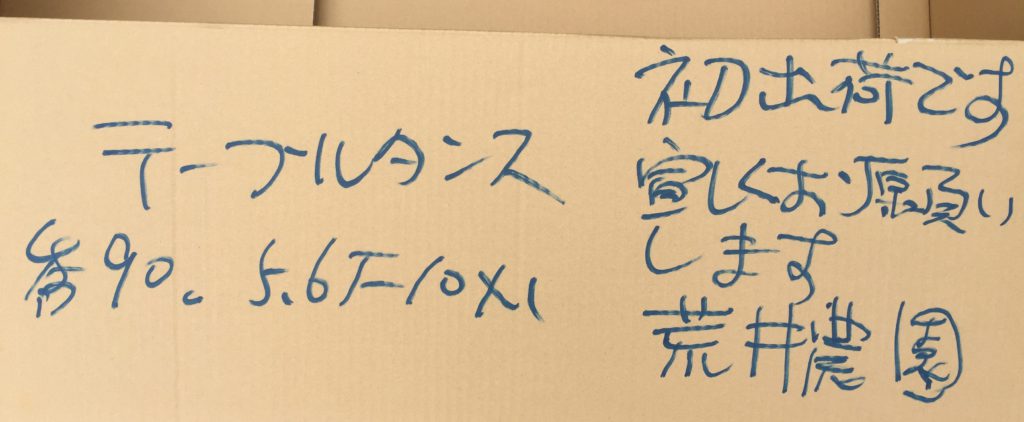 テーブルタンス
秀90。5.6F-10×1
初出荷です
宜しくお願い
します
荒井農園